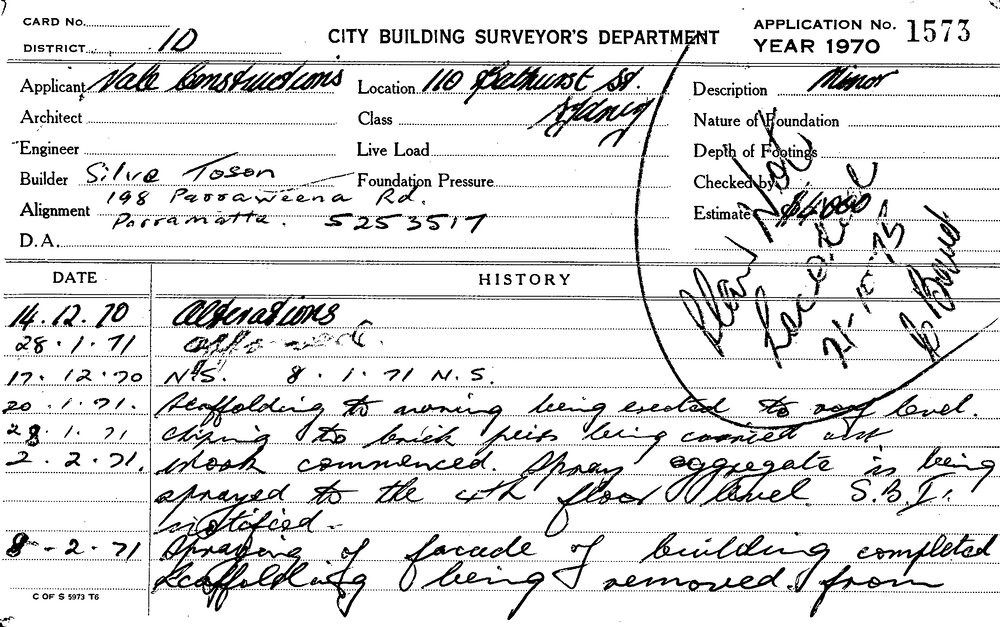 CARD No.
DISTRICT 1D
CITY BUILDING SURVEYOR'S DEPARTMENT
APPLICATION No. 1573
YEAR 1970
Applicant Vale Constructions
Location 110 Bathurst St.
Sydney
Description Minor
Architect
Class
Nature of Foundation
Engineer
Live Load
Depth of Footings
Builder Silvo Toson
Foundation Pressure
Checked by
198 Parraweena Rd.
Alignment
Parramatta. 5253517
Estimate $4000
D.A.
Plan Not
Located
21-10-75
DATE
HISTORY
14.12.70 Alterations
28.1.71 approved.
17.12.70 N.S. 8.1.71 N.S.
20.1.71. Scaffolding to awning being erected to roof level.
28.1.71 Chiping to brick peirs being carried out
2.2.71. work commenced. Spray aggregate is being
sprayed to the 4th floor level S.B.I.
notified -
8-2-71 Spraying of facade of building completed
Scaffolding being removed from
C OF S 5973 T6